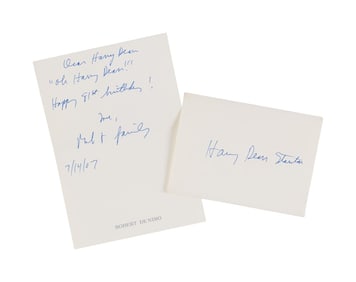 Dear Harry Dean
"Oh Harry Dean!!"
Happy 81st birthday!
Love,
Bob & family
7/14/07
ROBERT DE NIRO
Harry Dean Stanton